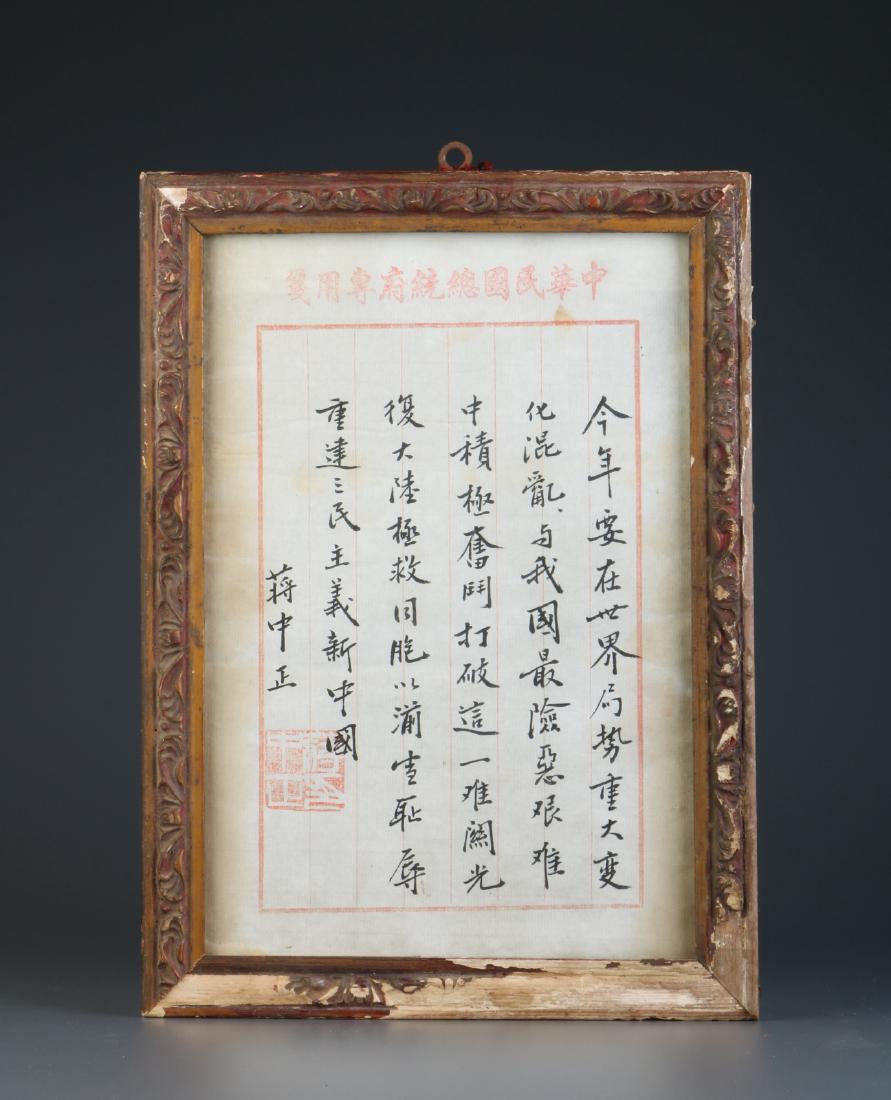 中華民國總統府專用箋
今年要在世界局势重大变
化混亂、与我國最險惡艰难
中積極奮鬥打破這一难關光
復大陸極救同胞以湔雪耻辱
重建三民主義新中國
蔣中正